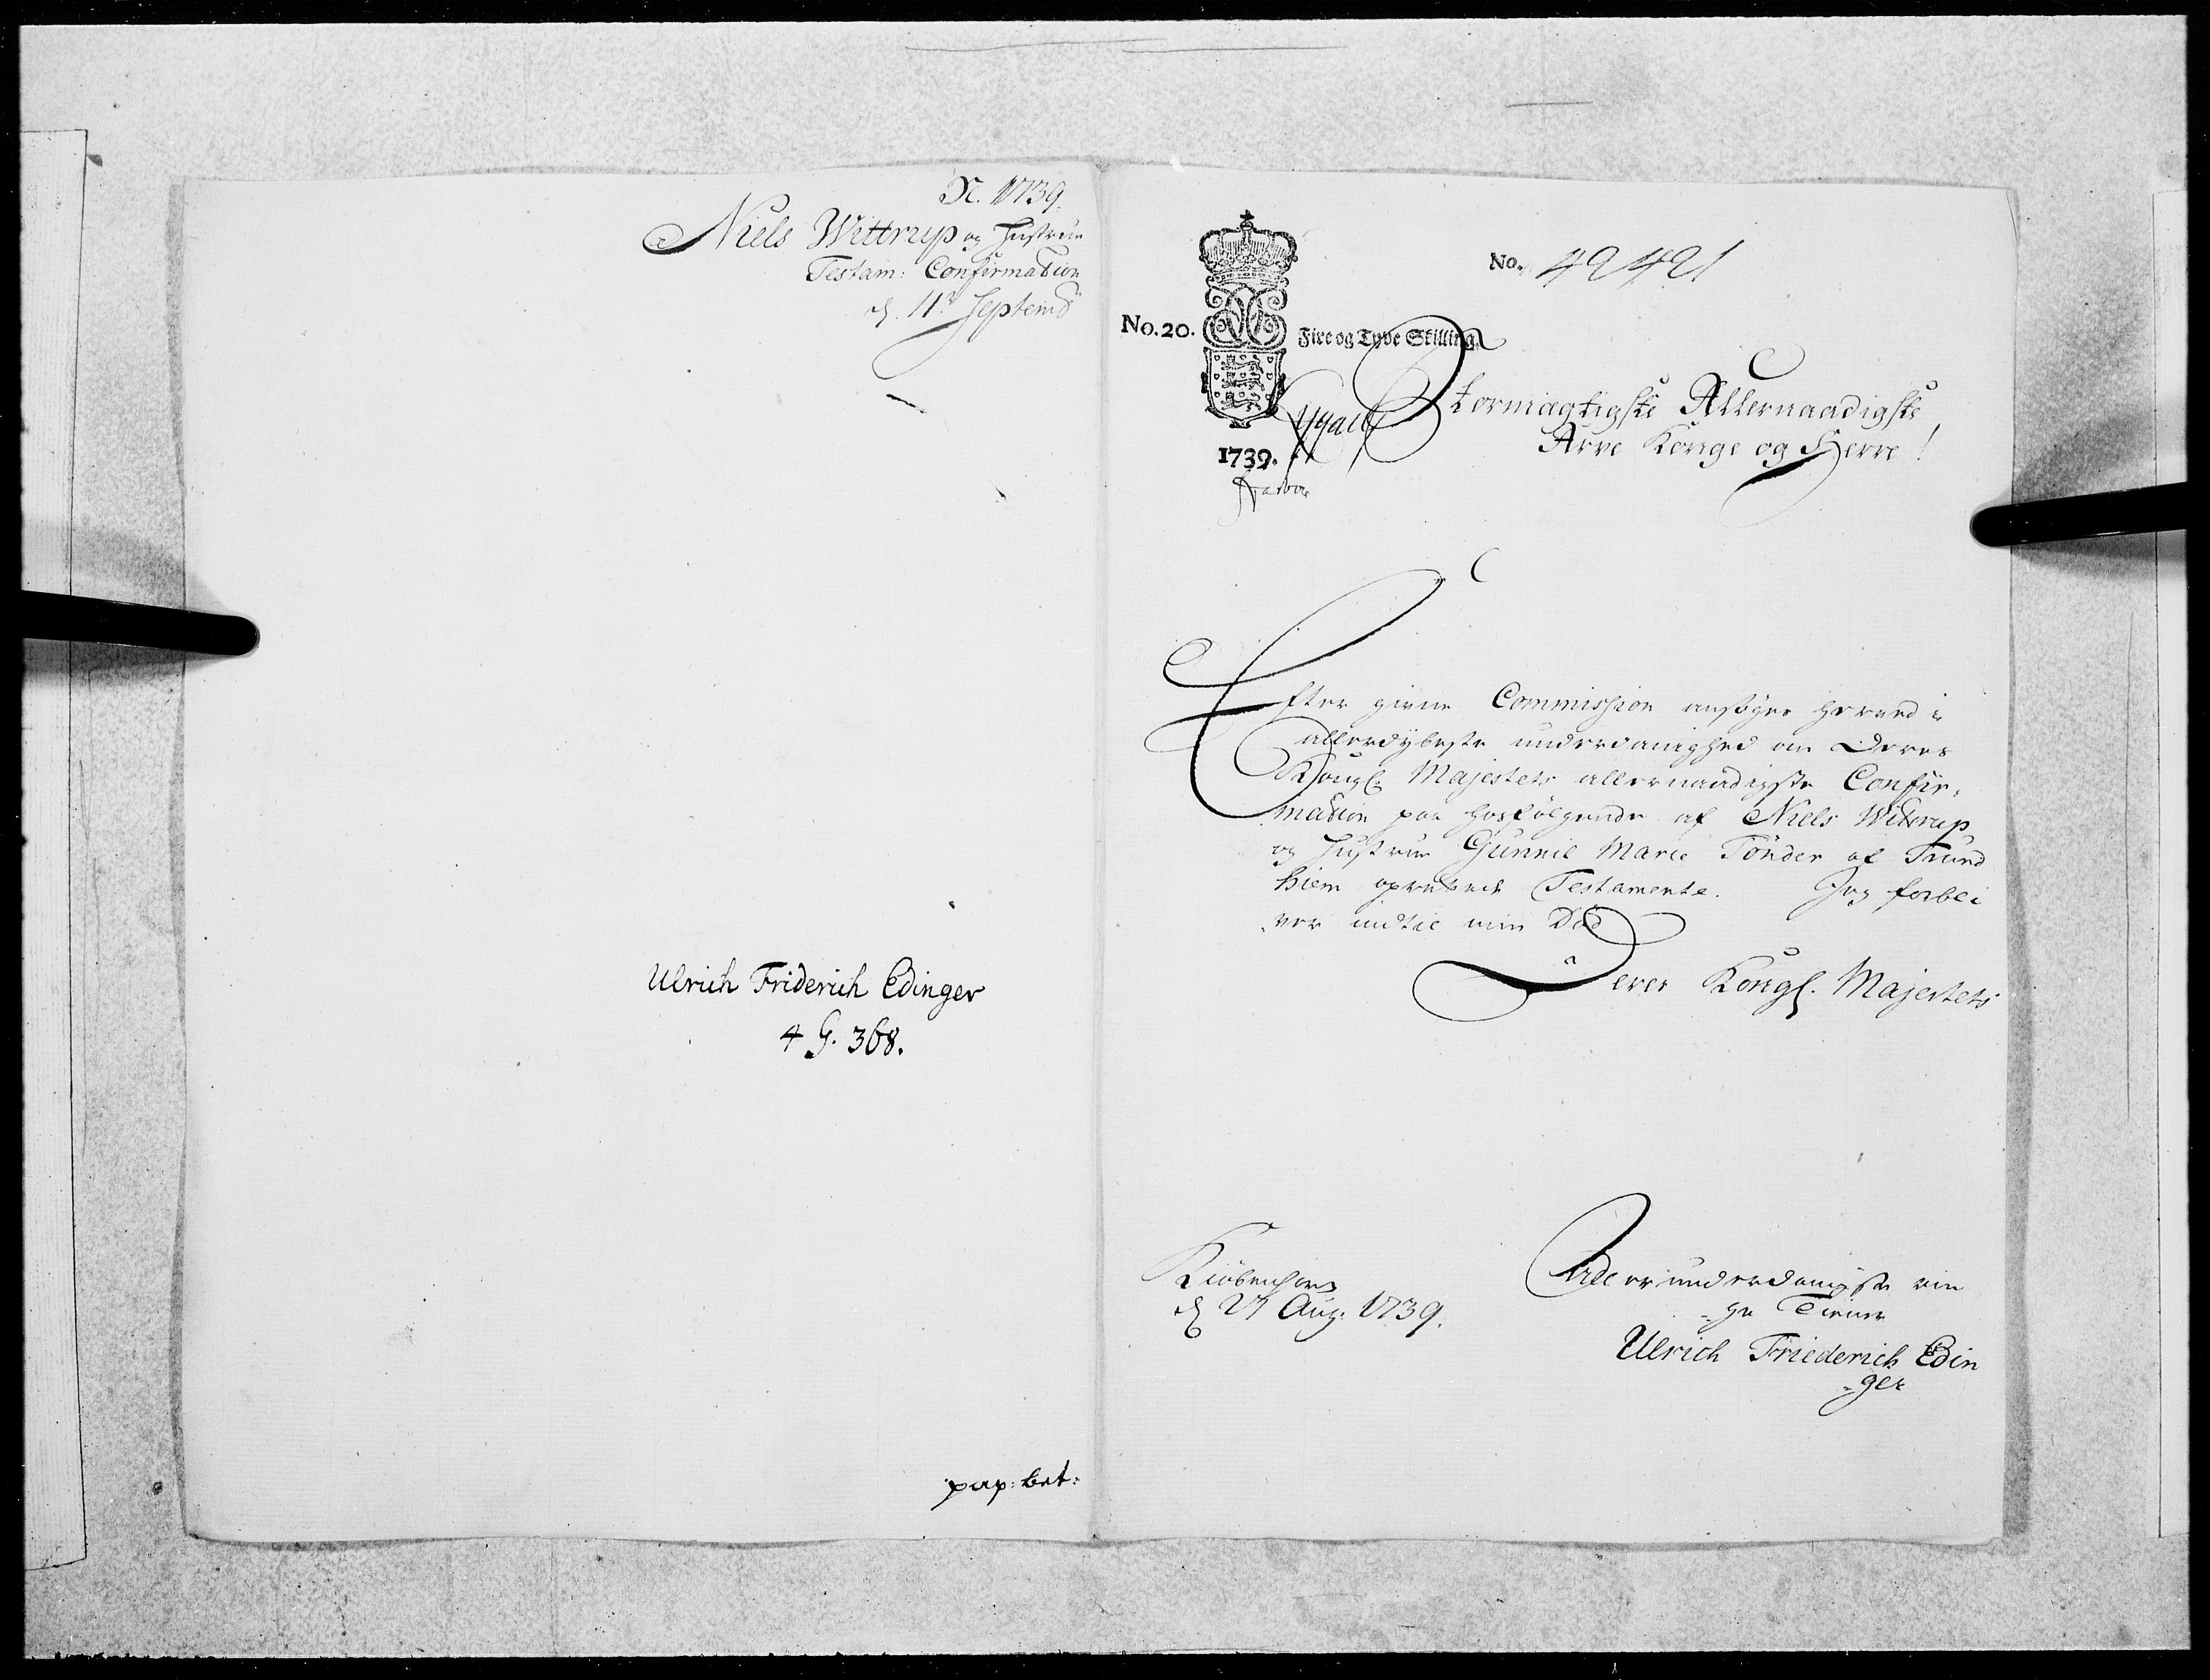 N. 1739.
Niels Wittrup og Hustrue
Testam: Confirmation
d. 11t Septemb
Ulrich Friderich Edinger
4 G. 368.
pap: bet:
No. 42421
No. 20.
Fire og Tyve Skilling
1739.
Stormægtigste Allernaadigste
Arve Konge og Herre!
Efter givne Commission ansøges herved i
allerdybeste underdanighed om Deres
Kongl: Majestets allernaadigste Confir,
mation paa hosfølgende af Niels Witrup
og Hustrue Gunnil Marie Tönder af Trund
hiem oprettede Testamente. Jeg forbli
ver indtil min Död
Deres Kongl. Majestets
Kiøbenhavn
d 27 Aug. 1739.
Allerunderdanigste rin
ge Tiener
Ulrich Friederich Edin
-ger